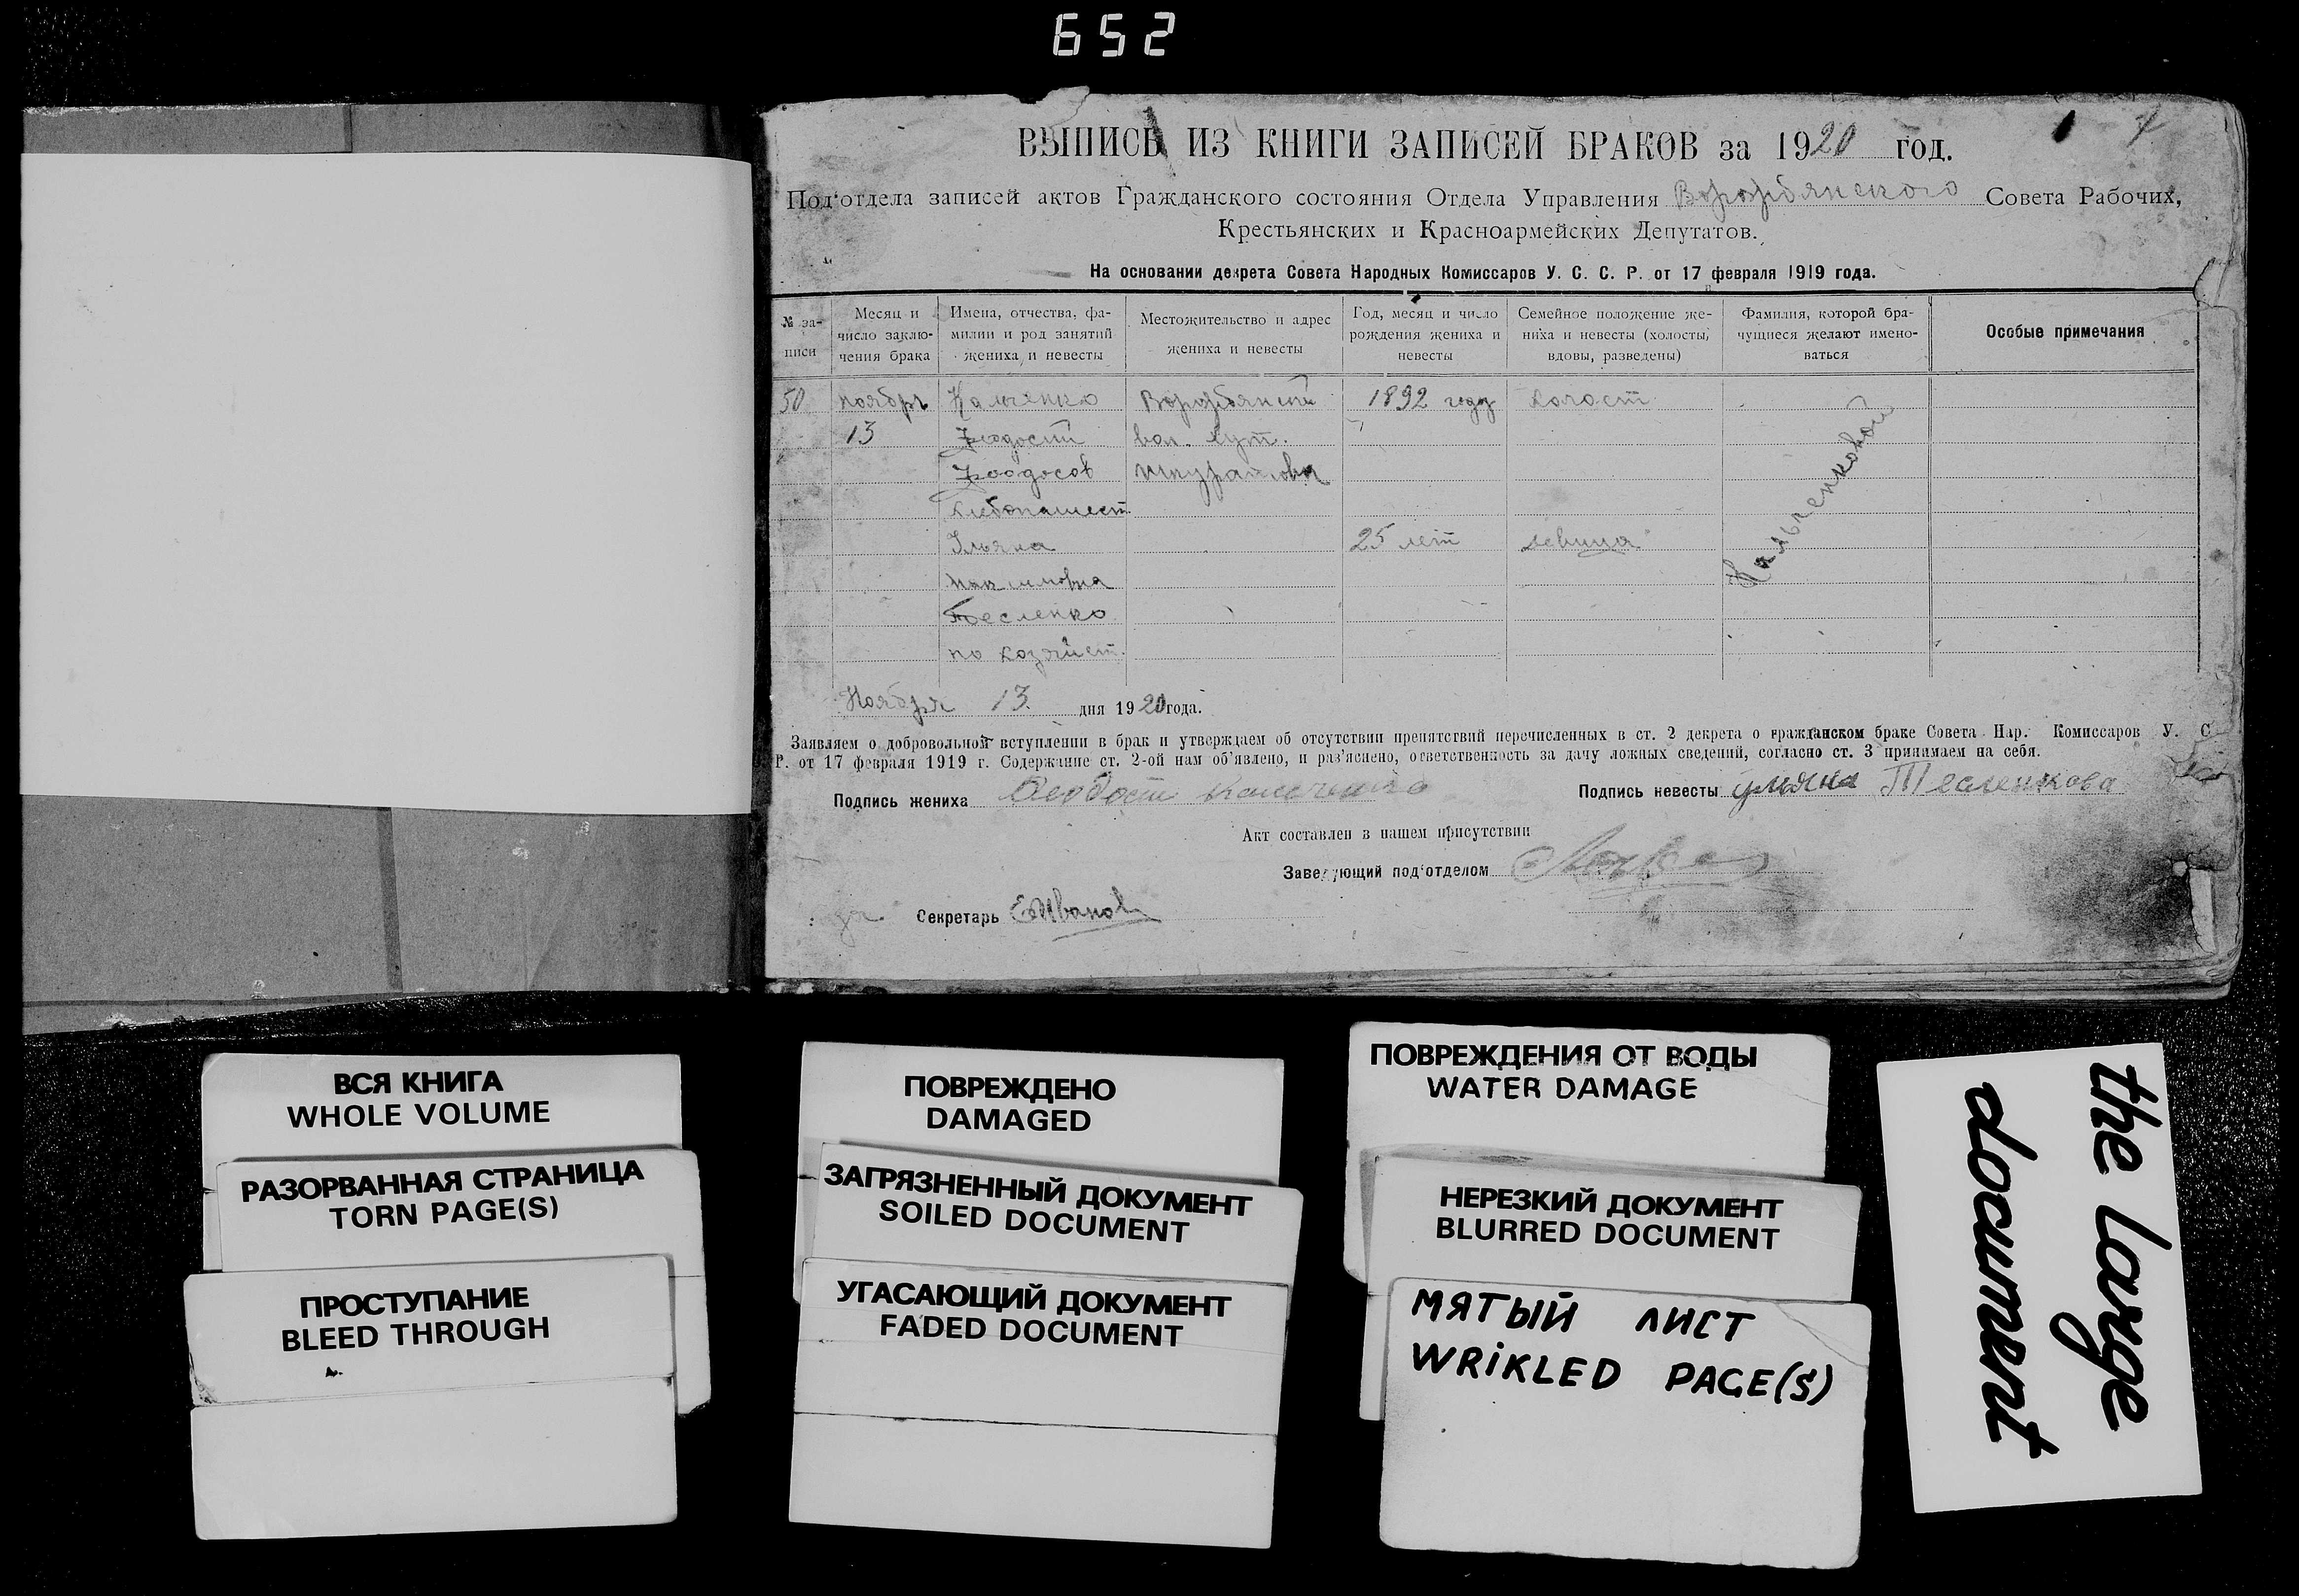 652
ВЫПИСЬ ИЗ КНИГИ ЗАПИСЕЙ БРАКОВ за 1920 год.
Под'отдела записей актов Гражданского состояния Отдела Управления Ворожбянского Совета Рабочих,
Крестьянских и Красноармейских Депутатов.
На основании декрета Совета Народных Комиссаров У. С. С. Р. от 17 февраля 1919 года.
№ за-
писи
Месяц и
число заклю-
чения брака
Имена, отчества, фа-
милии и род занятий
жениха и невесты
Местожительство и адрес
жениха и невесты
Год, месяц и число
рождения жениха и
невесты
Семейное положение же-
ниха и невесты (холосты,
вдовы, разведены)
Фамилия, которой бра-
чущиеся желают имено-
ваться
Особые примечания
50 ноябрь Кальченко Ворожбянской 1892 году холост
13 Феодосий вол. хут.
Феодосов
хлебопашест.
Ульяна 25 лет девица
Максимовна
Тесленко
по хозяйст.
Кальченковой
Ноября 13 дня 1920 года.
Заявляем о добровольном вступлении в брак и утверждаем об отсутствии препятствий перечисленных в ст. 2 декрета о гражданском браке Совета Нар. Комиссаров У. С.
Р. от 17 февраля 1919 г. Содержание ст. 2-ой нам об'явлено, и раз'яснено, ответственность за дачу ложных сведений, согласно ст. 3 принимаем на себя.
Подпись жениха Феодосий Кальченко Подпись невесты Ульяна Тесленкова
Акт составлен в нашем присутствии
Заведующий под'отделом
Секретарь Е Иванов
ВСЯ КНИГА
WHOLE VOLUME
РАЗОРВАННАЯ СТРАНИЦА
TORN PAGE(S)
ПРОСТУПАНИЕ
BLEED THROUGH
ПОВРЕЖДЕНО
DAMAGED
ЗАГРЯЗНЕННЫЙ ДОКУМЕНТ
SOILED DOCUMENT
УГАСАЮЩИЙ ДОКУМЕНТ
FADED DOCUMENT
ПОВРЕЖДЕНИЯ ОТ ВОДЫ
WATER DAMAGE
НЕРЕЗКИЙ ДОКУМЕНТ
BLURRED DOCUMENT
МЯТЫЙ ЛИСТ
WRIKLED PAGE(S)
the large
document